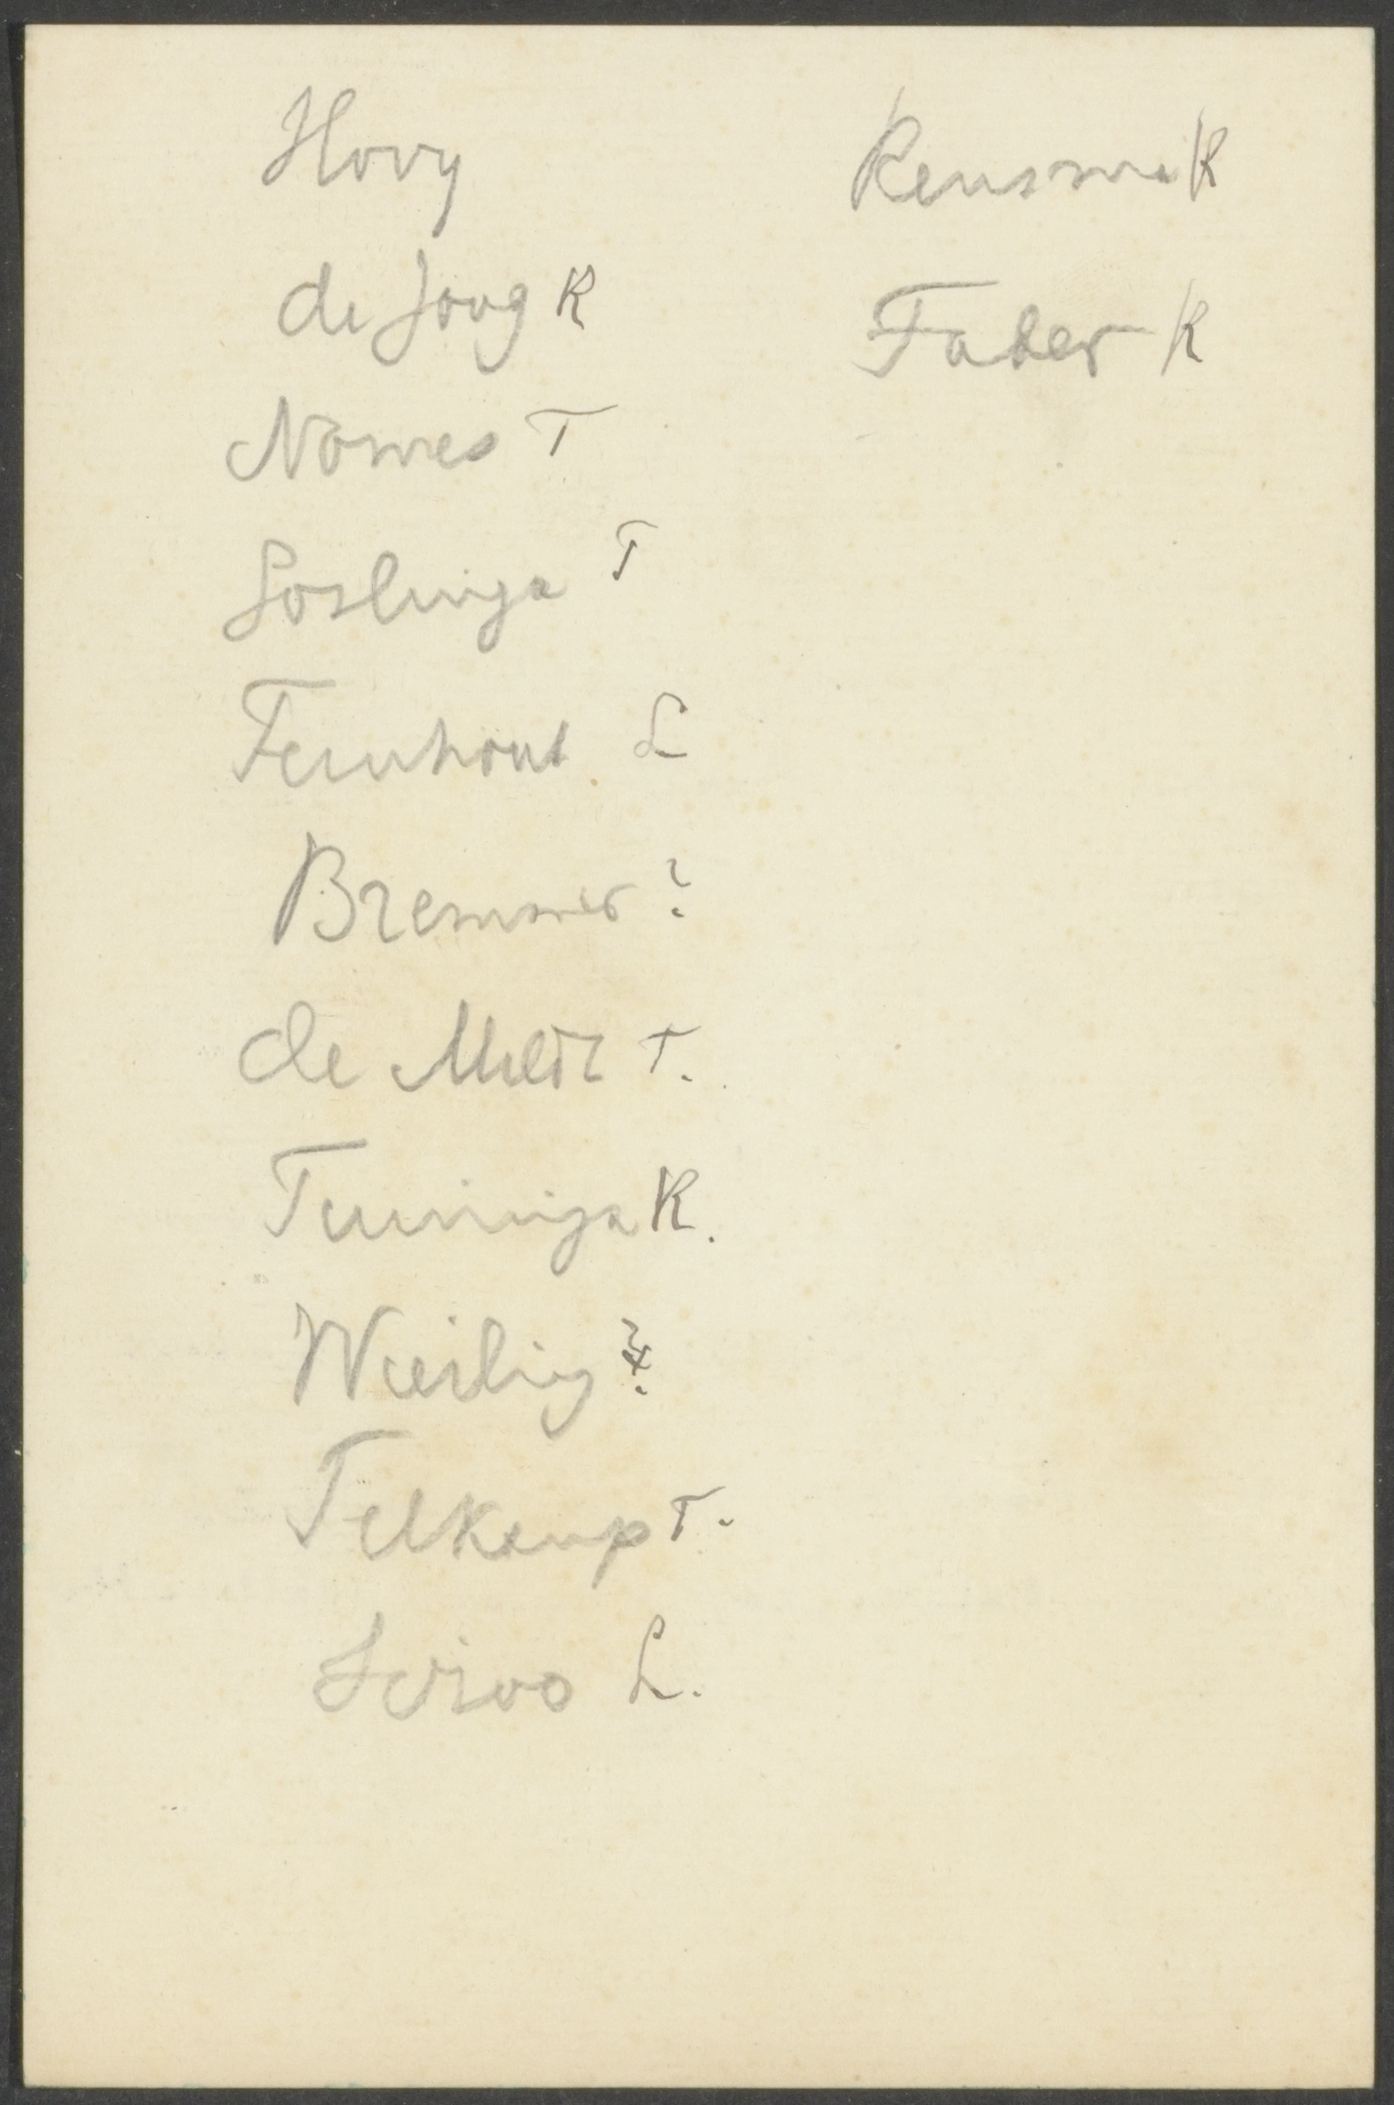 Hovy
de Jong K
Nomes T
Goslinga T
Feenhout L
Bremmer ?
de Mildt T.
Tuininga K.
Wierling ?
Telkamp T.
L.
Rensma K
Faber K